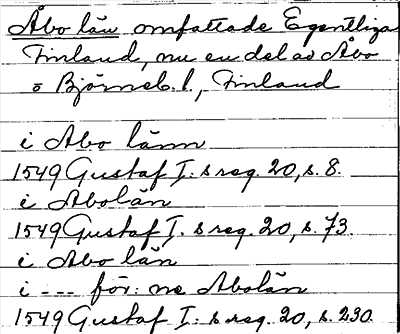 Åbo län omfattade Egentliga
Finland, nu en del av Åbo
o Björneb. l., Finland
i Abo länn
1549 Gustaf I:s reg. 20, s. 8.
i Abolän
1549 Gustaf I:s reg. 20, s. 73.
i Abo län
i --- för: ne Abolän
1549 Gustaf I:s reg. 20, s. 230.